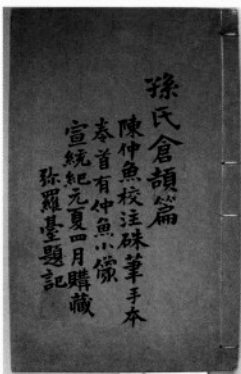 孫氏倉頡篇
陳仲魚校注硃筆手本
卷首有仲魚小像
宣統紀元夏四月購藏
弥羅臺題記